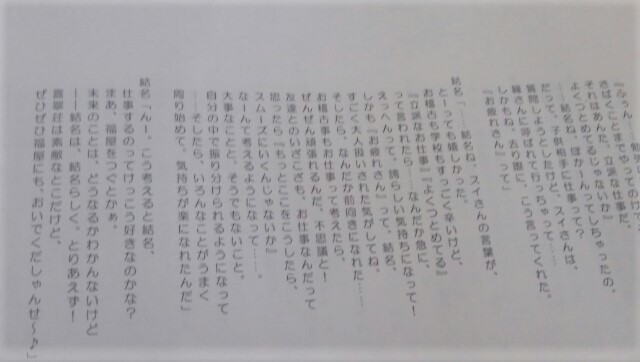 『ふぅん、
さばくことまでやってのける
それはあんた、立派な仕事だ。
よくつとめてるじゃないか』
――結名ね、ぽかーんってしちゃったの。
だって、子供相手に仕事って?
質問しようとしたけど、スイさんは、
縁さんに呼ばれて行っちゃって……
しかもね、去り際に、こう言ってくれた。
『お疲れさん』って」
結名「……結名ね、スイさんの言葉が、
とーっても嬉しかった。
お稽古も学校もすっごく辛いけど、
『立派なお仕事』『よくつとめてる』
って言われたら……なんだか急に、
えっへんって、誇らしい気持ちになって!
しかも『お疲れさん』って、結名、
すごく大人扱いされた気がしてね。
そしたら、なんだか前向きになれた……
お稽古事もお仕事って考えたら、
ぜんぜん頑張れるんだ、不思議と!
友達とのいざこざも、お仕事なんだって
思ったら『もっとここをこうしたら、
スムーズにいくんじゃないか』
なーんて考えるようになって……。
大事なことと、そうでもないこと、
自分の中で振り分けられるようになって
……そしたら、いろんなことがうまく
周り始めて、気持ちが楽になれたんだ」
結名「んー。こう考えると結名、
仕事するのってけっこう好きなのかな?
まあ、福屋をつぐとかぁ。
未来のことは、どうなるかわかんないけど
――結名は、結名らしく。とりあえず!
喜翠荘は素敵なとこだけど、
ぜひぜひ福屋にも、おいでくだしゃんせ~♪」